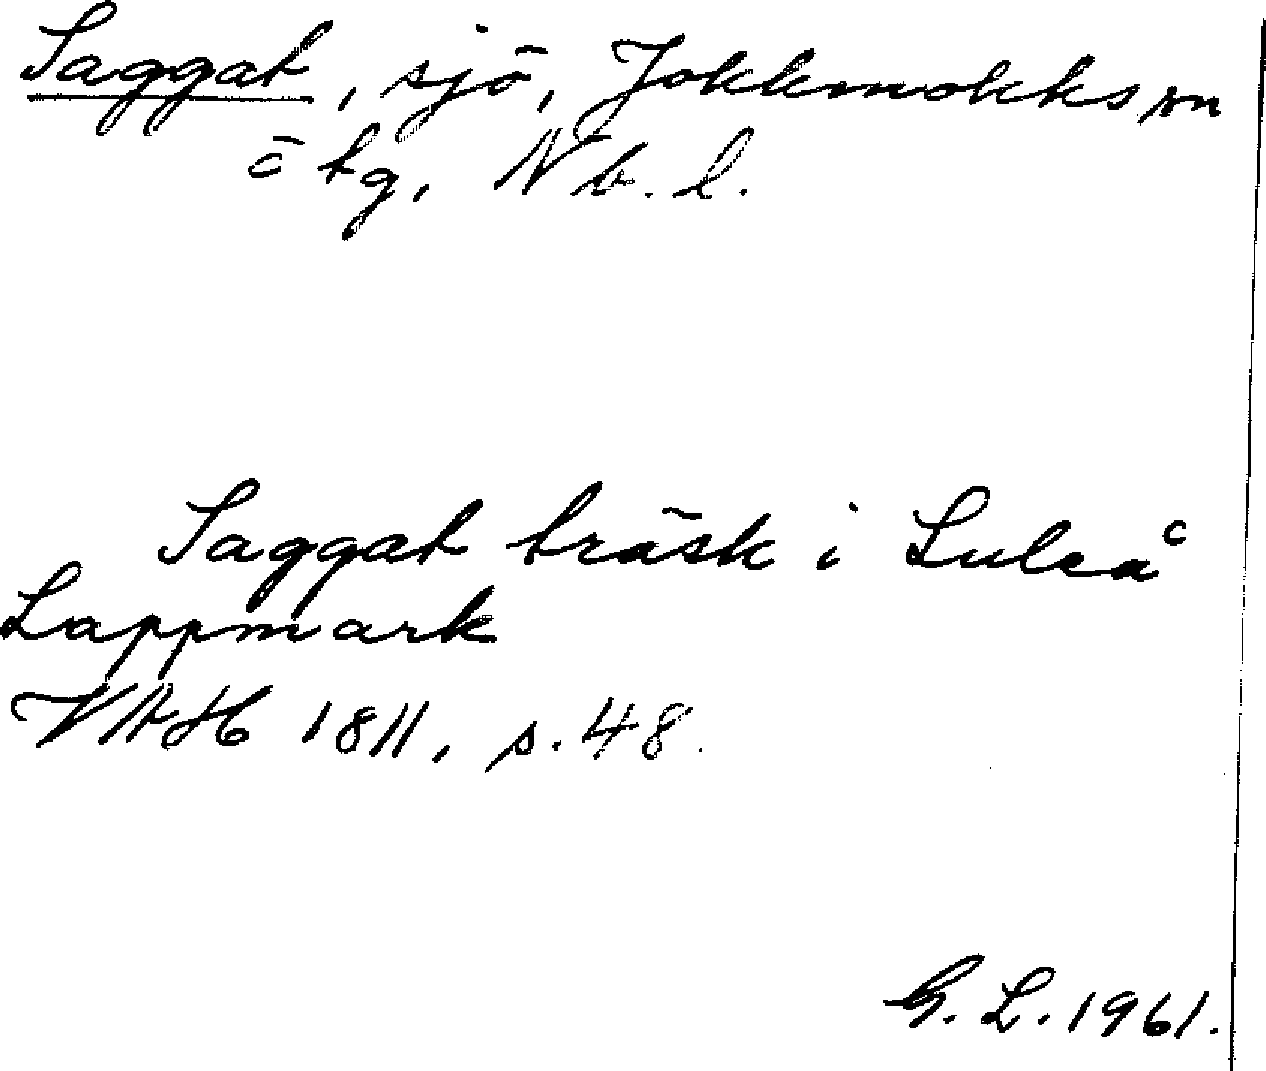 Saggat, sjö, Jokkmokks sn
o tg, Nb. l.
Saggat träsk i Luleå
Lappmark
VAH 1811, s. 48.
G. L. 1961.